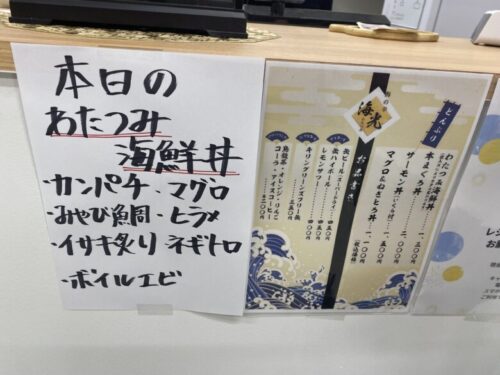 本日の
わたつみ
海鮮丼
・カンパチ・マグロ
・みやび鯛・ヒラメ
・イサキ炙り ネギトロ
・ボイルエビ
海光
お品書き
どんぶり
わたつみ海鮮丼 一、五〇〇円
本まぐろ丼
サーモン丼
マグロのねぎとろ丼 一、一〇〇円
(税込価格)
缶ハイボール
レモンサワー
キリングリーンズフリー
烏龍茶・オレンジ・りんご
コーラ・アイスコーヒー